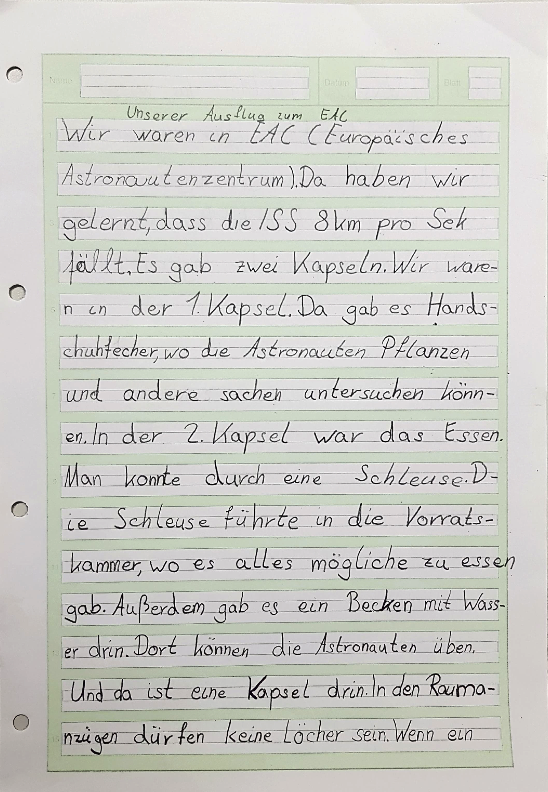 Unserer Ausflug zum EAC
Wir waren in EAC (Europäisches
Astronautenzentrum). Da haben wir
gelernt, dass die ISS 8km pro Sek
fällt. Es gab zwei Kapseln. Wir ware-
n in der 1. Kapsel. Da gab es Hands-
chuhfecher, wo die Astronauten Pflanzen
und andere sachen untersuchen könn-
en. In der 2. Kapsel war das Essen.
Man konnte durch eine Schleuse. D-
ie Schleuse führte in die Vorrats-
kammer, wo es alles mögliche zu essen
gab. Außerdem gab es ein Becken mit Wass-
er drin. Dort können die Astronauten üben.
Und da ist eine Kapsel drin. In den Rauma-
nzügen dürfen keine Löcher sein. Wenn ein